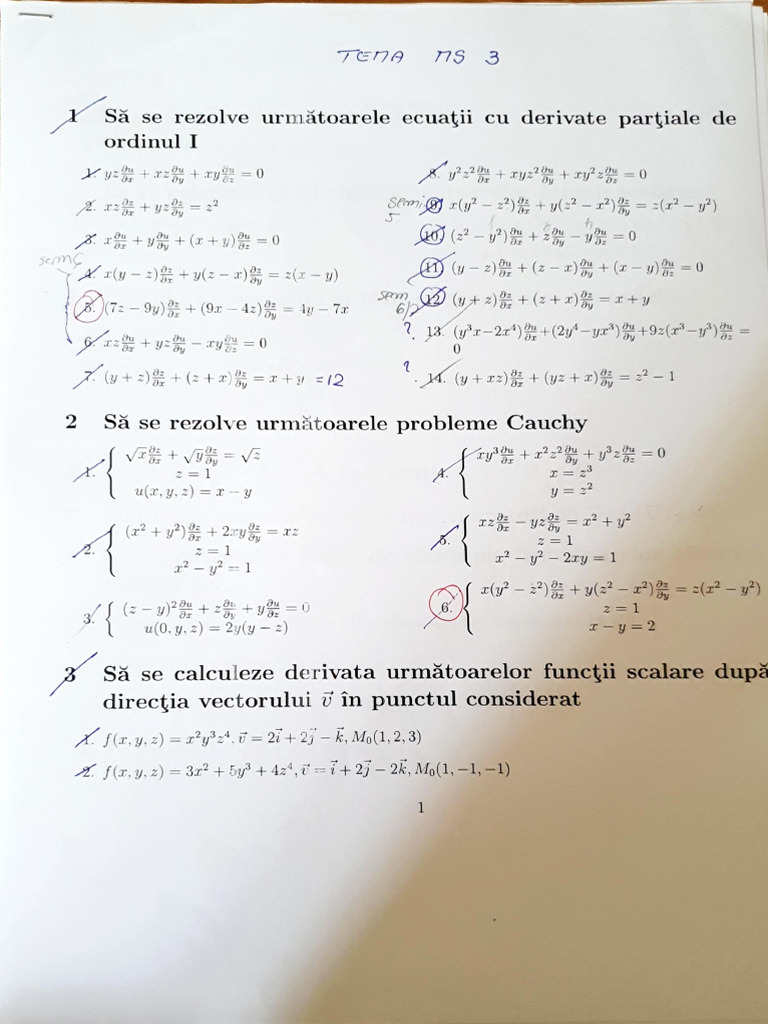 TEMA MS 3
1 Să se rezolve următoarele ecuaţii cu derivate parţiale de
ordinul I
1. yz ∂u/∂x + xz ∂u/∂y + xy ∂u/∂z = 0
2. xz ∂z/∂x + yz ∂z/∂y = z²
3. x ∂u/∂x + y ∂u/∂y + (x + y) ∂u/∂z = 0
4. x(y − z) ∂z/∂x + y(z − x) ∂z/∂y = z(x − y)
5. (7z − 9y) ∂z/∂x + (9x − 4z) ∂z/∂y = 4y − 7x
6. xz ∂u/∂x + yz ∂u/∂y − xy ∂u/∂z = 0
7. (y + z) ∂z/∂x + (z + x) ∂z/∂y = x + y =12
8. y²z² ∂u/∂x + xyz² ∂u/∂y + xy²z ∂u/∂z = 0
semi 5
9. x(y² − z²) ∂z/∂x + y(z² − x²) ∂z/∂y = z(x² − y²)
10. (z² − y²) ∂u/∂x + z ∂u/∂y − y ∂u/∂z = 0
11. (y − z) ∂u/∂x + (z − x) ∂u/∂y + (x − y) ∂u/∂z = 0
sem
12. (y + z) ∂z/∂x + (z + x) ∂z/∂y = x + y
? 13. (y³x−2x⁴) ∂u/∂x +(2y⁴−yx³) ∂u/∂y +9z(x³−y³) ∂u/∂z =
0
? 14. (y + xz) ∂z/∂x + (yz + x) ∂z/∂y = z² − 1
2 Să se rezolve următoarele probleme Cauchy
1. √x ∂z/∂x + √y ∂z/∂y = √z
z = 1
u(x, y, z) = x − y
2. (x² + y²) ∂z/∂x + 2xy ∂z/∂y = xz
z = 1
x² − y² = 1
3. (z − y)² ∂u/∂x + z ∂u/∂y + y ∂u/∂z = 0
u(0, y, z) = 2y(y − z)
4. xy³ ∂u/∂x + x²z² ∂u/∂y + y³z ∂u/∂z = 0
x = z³
y = z²
5. xz ∂z/∂x − yz ∂z/∂y = x² + y²
z = 1
x² − y² − 2xy = 1
6. x(y² − z²) ∂z/∂x + y(z² − x²) ∂z/∂y = z(x² − y²)
z = 1
x − y = 2
3 Să se calculeze derivata următoarelor funcţii scalare după
direcţia vectorului v⃗ în punctul considerat
1. f(x, y, z) = x²y³z⁴, v⃗ = 2i⃗ + 2j⃗ − k⃗, M₀(1, 2, 3)
2. f(x, y, z) = 3x² + 5y³ + 4z⁴, v⃗ = i⃗ + 2j⃗ − 2k⃗, M₀(1, −1, −1)
1